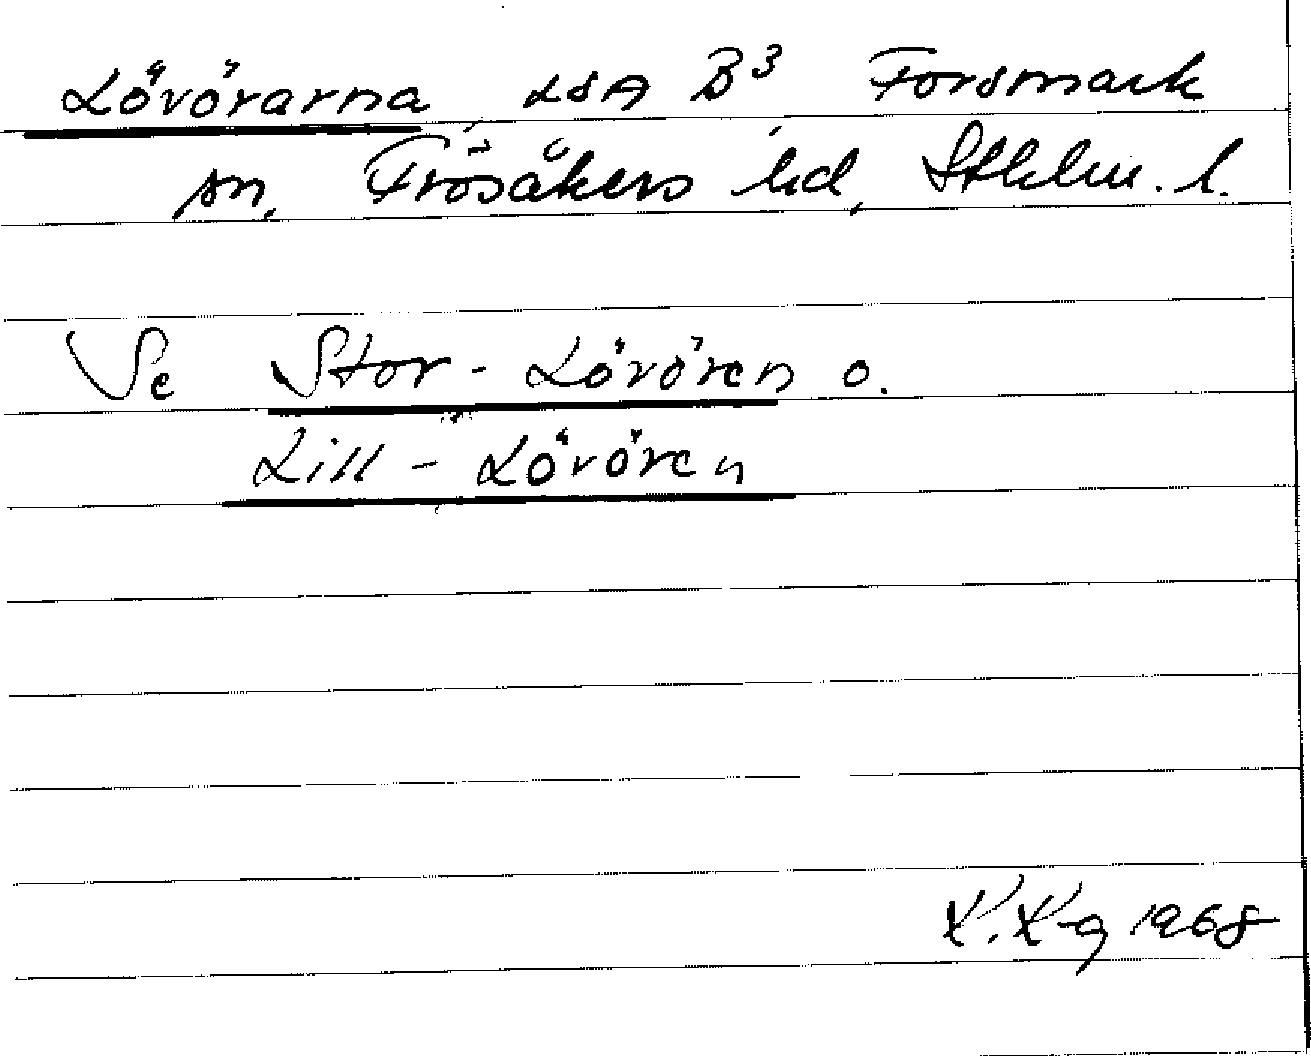 Lövörarna, LSA B3, Forsmark
sn, Frösåkers hd, Sthlm. l.
Se Stor-Lövören o.
Lill-Lövören
K.K-g 1968